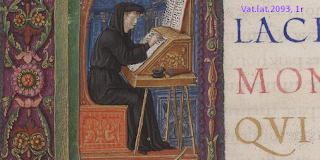 Vat.lat.2093, 1r
LACE
MON
QVI